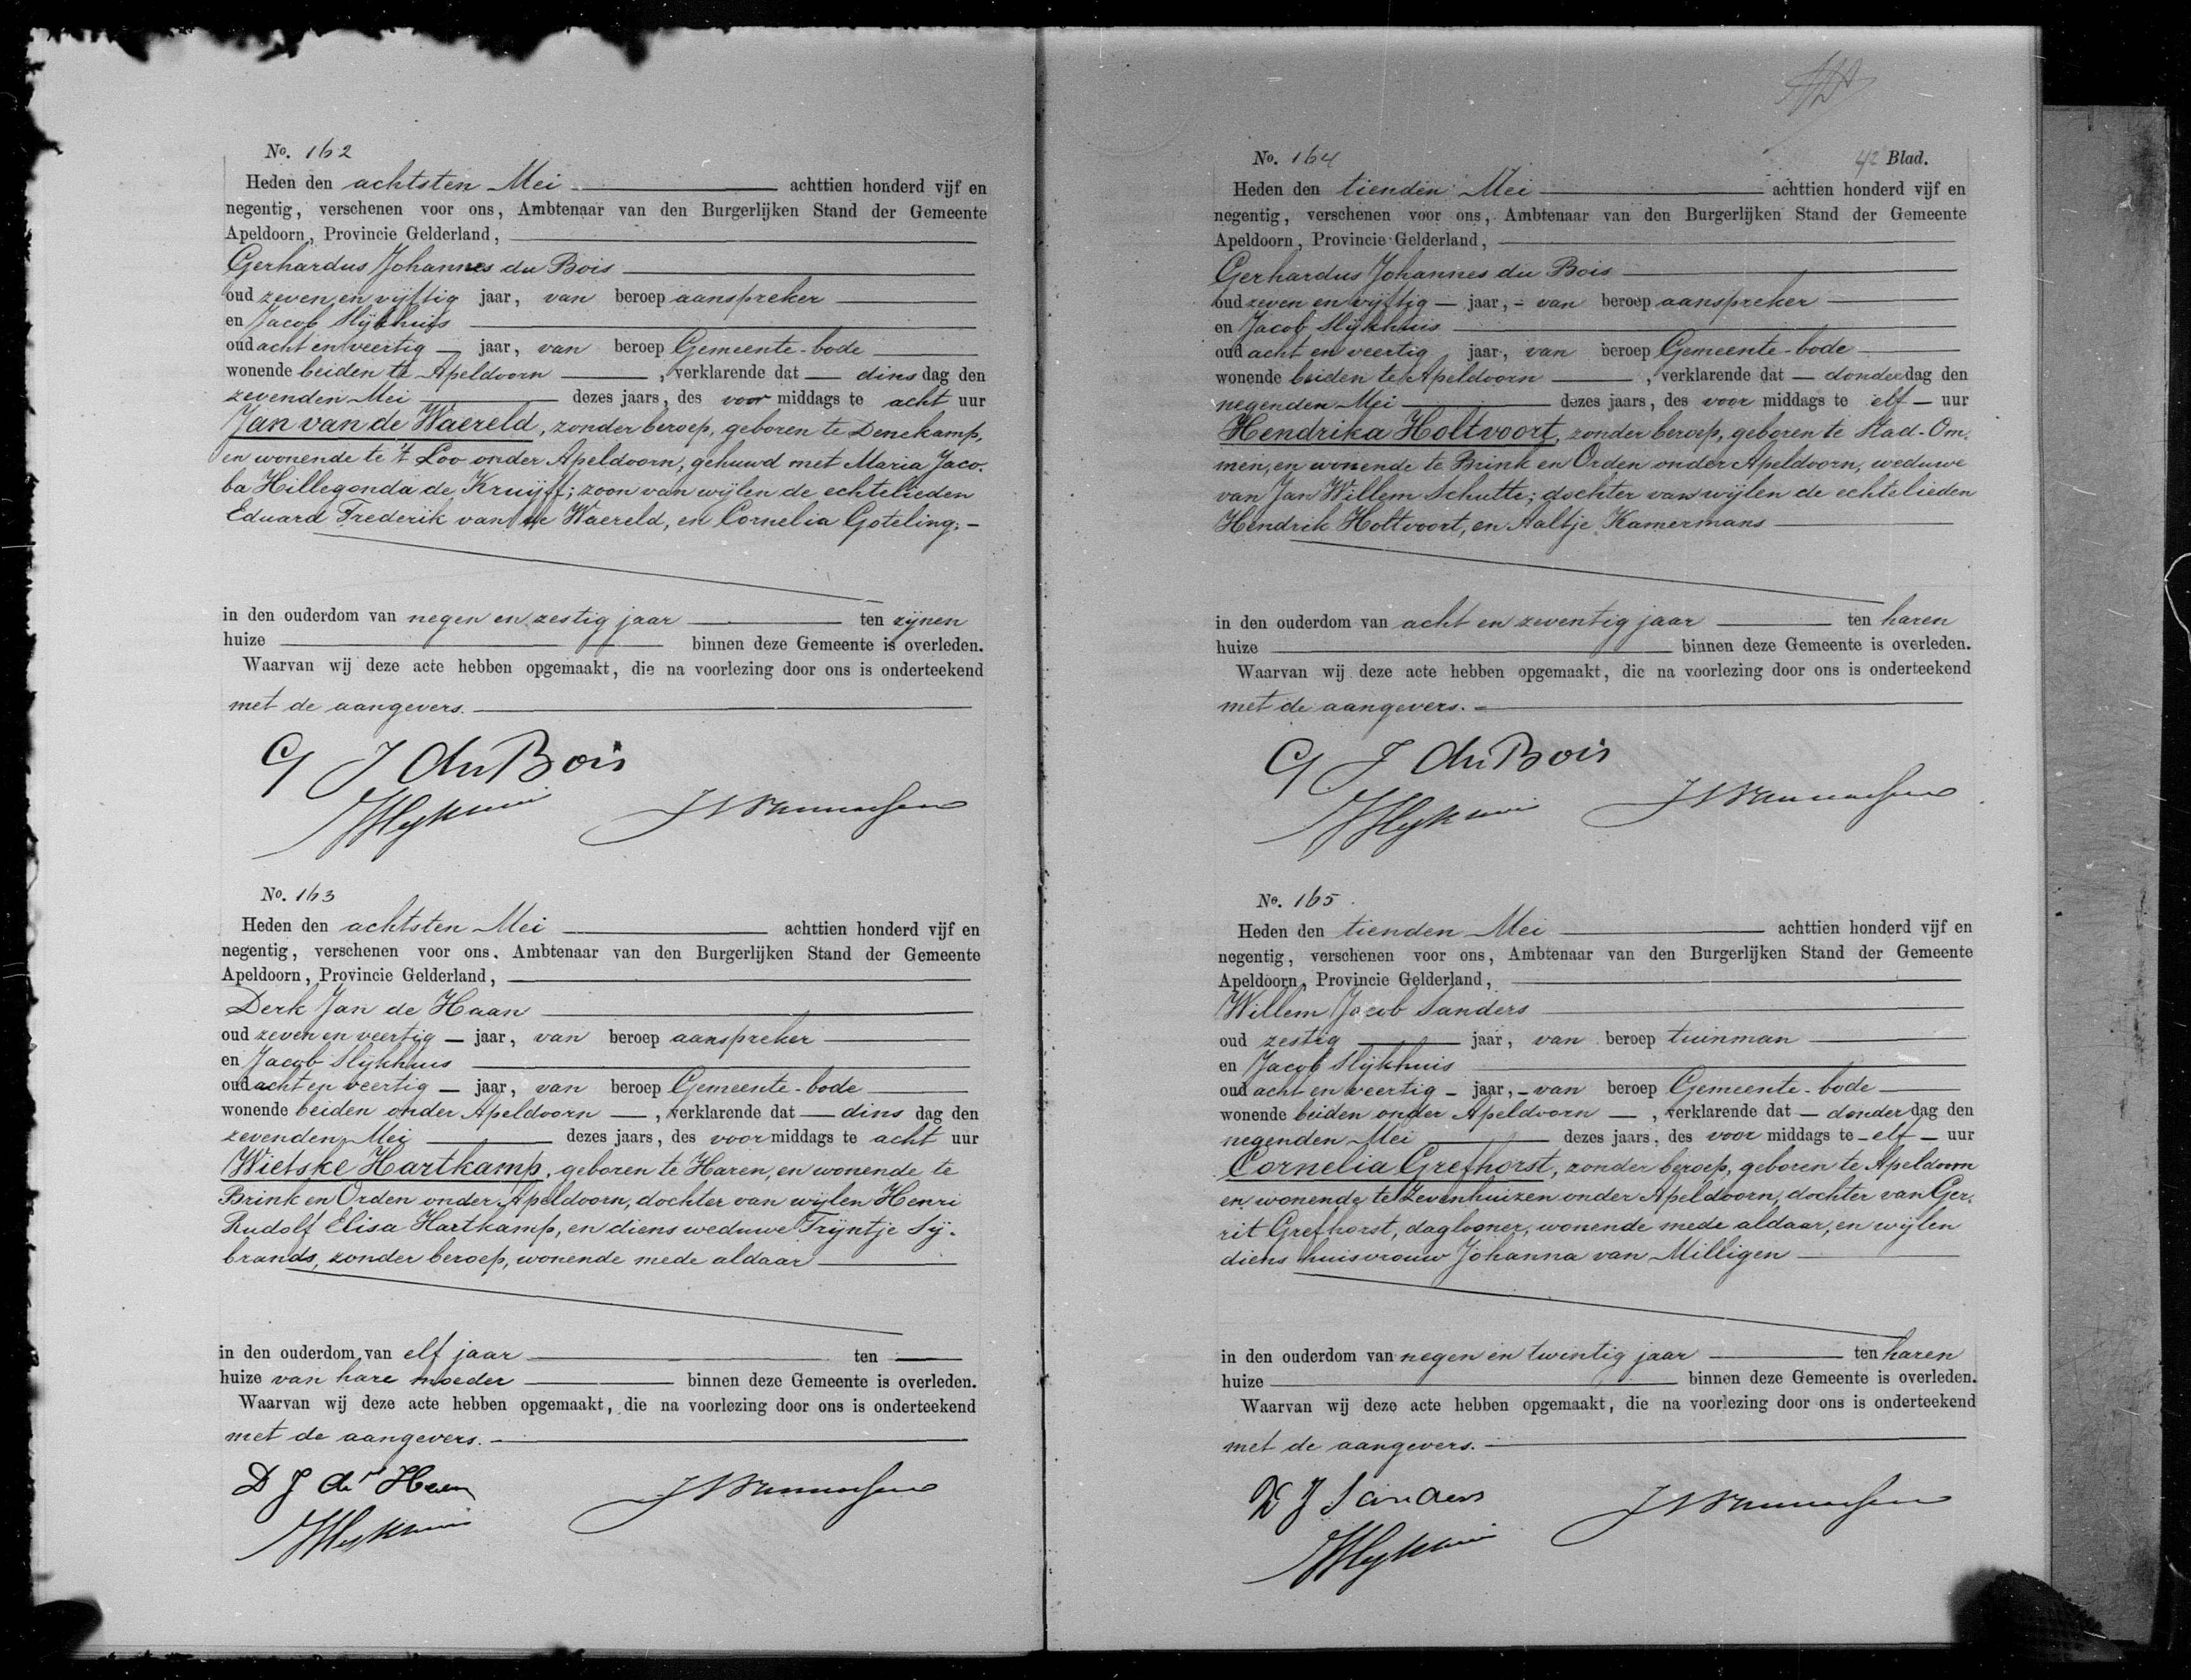 No. 162
Heden den achtsten Mei achttien honderd vijf en
negentig, verschenen voor ons, Ambtenaar van den Burgerlijken Stand der Gemeente
Apeldoorn, Provincie Gelderland,
Gerhardus Johannes du Bois
oud zeven en vijftig jaar, van beroep aanspreker
en Jacob Slijkhuis
oud acht en veertig jaar, van beroep Gemeente-bode
wonende beiden te Apeldoorn, verklarende dat dinsdag den
zevenden Mei dezes jaars, des voormiddags te acht uur
Jan van de Waereld, zonder beroep, geboren te Denekamp,
en wonende te 't Loo onder Apeldoorn, gehuwd met Maria Jaco-
ba Hillegonda de Kruijff; zoon van wijlen de echtelieden
Eduard Frederik van de Waereld, en Cornelia Goteling;
in den ouderdom van negen en zestig jaar ten zijnen
huize binnen deze Gemeente is overleden.
Waarvan wij deze acte hebben opgemaakt, die na voorlezing door ons is onderteekend
met de aangevers.
G J du Bois
No. 163
Heden den achtsten Mei achttien honderd vijf en
negentig, verschenen voor ons, Ambtenaar van den Burgerlijken Stand der Gemeente
Apeldoorn, Provincie Gelderland,
Derk Jan de Haan
oud zeven en veertig jaar, van beroep aanspreker
en Jacob Slijkhuis
oud acht en veertig jaar, van beroep Gemeente-bode
wonende beiden onder Apeldoorn, verklarende dat dinsdag den
zevenden Mei dezes jaars, des voormiddags te acht uur
Wietske Hartkamp, geboren te Haren, en wonende te
Brink en Orden onder Apeldoorn, dochter van wijlen Henri
Rudolf Elisa Hartkamp, en diens weduwe Trijntje Sij-
brands, zonder beroep, wonende mede aldaar
in den ouderdom van elf jaar ten
huize van hare moeder binnen deze Gemeente is overleden.
Waarvan wij deze acte hebben opgemaakt, die na voorlezing door ons is onderteekend
met de aangevers.
D J de Haan
No. 164
42 Blad.
Heden den tienden Mei achttien honderd vijf en
negentig, verschenen voor ons, Ambtenaar van den Burgerlijken Stand der Gemeente
Apeldoorn, Provincie Gelderland,
Gerhardus Johannes du Bois
oud zeven en vijftig jaar, van beroep aanspreker
en Jacob Slijkhuis
oud acht en veertig jaar, van beroep Gemeente-bode
wonende beiden te Apeldoorn, verklarende dat donderdag den
negenden Mei dezes jaars, des voormiddags te elf uur
Hendrika Holtvoort, zonder beroep, geboren te Stad-Om-
men, en wonende te Brink en Orden onder Apeldoorn, weduwe
van Jan Willem Schutte; dochter van wijlen de echtelieden
Hendrik Holtvoort, en Aaltje Kamermans
in den ouderdom van acht en zeventig jaar ten haren
huize binnen deze Gemeente is overleden.
Waarvan wij deze acte hebben opgemaakt, die na voorlezing door ons is onderteekend
met de aangevers.
G J du Bois
No. 165
Heden den tienden Mei achttien honderd vijf en
negentig, verschenen voor ons, Ambtenaar van den Burgerlijken Stand der Gemeente
Apeldoorn, Provincie Gelderland,
Willem Jacob Sanders
oud zestig jaar, van beroep tuinman
en Jacob Slijkhuis
oud acht en veertig jaar, van beroep Gemeente-bode
wonende beiden onder Apeldoorn, verklarende dat donderdag den
negenden Mei dezes jaars, des voormiddags te elf uur
Cornelia Grefhorst, zonder beroep, geboren te Apeldoorn
en wonende te Zevenhuizen onder Apeldoorn, dochter van Ger-
rit Grefhorst, daglooner, wonende mede aldaar, en wijlen
diens huisvrouw Johanna van Milligen
in den ouderdom van negen en twintig jaar ten haren
huize binnen deze Gemeente is overleden.
Waarvan wij deze acte hebben opgemaakt, die na voorlezing door ons is onderteekend
met de aangevers.
W J Sanders